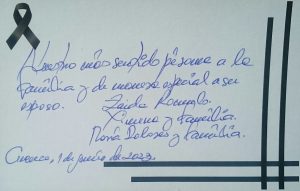 Nuestro más sentido pésame a la
familia y de manera especial a su
esposo.
Zaida
Ximena y familia.
María Dolores y familia.
Cuenca, 1 de junio de 2023.